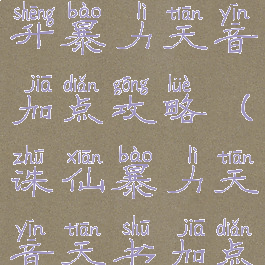 shēng bào lì tiān yīn
升暴力天音
jiā diǎn gōng lüè
加点攻略（
zhū xiān bào lì tiān
诛仙暴力天
yīn tiān shū jiā diǎn
音天书加点